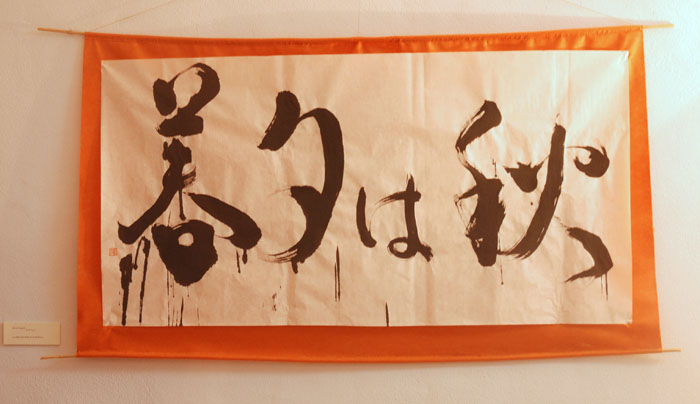 秋は夕暮